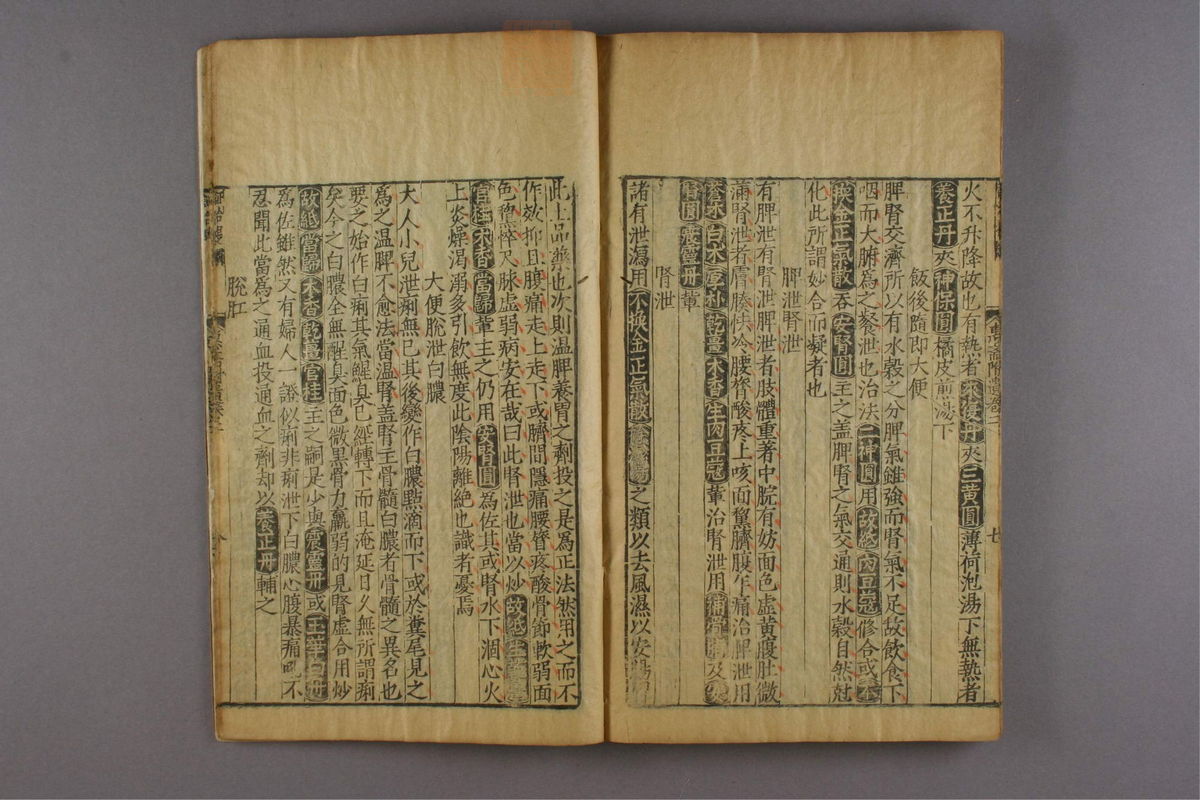 火不升降故也有熱者來復丹夾三黃圓薄荷泡湯下無熱者
養正丹夾神保圓橘皮煎湯下
飯後隨即大便
脾腎交濟所以有水穀之分脾氣雖強而腎氣不足故飲食下
咽而大腑為之飱泄也治法二神圓用故紙肉豆蔻修合或不
換金正氣散吞安腎圓主之盖脾腎之氣交通則水穀自然尅
化此所謂妙合而凝者也
脾泄腎泄
有脾泄有腎泄脾泄者肢體重著中脘有妨面色虛黃腹肚微
滿腎泄者膚腠怯冷腰膂酸疼上咳面黧臍腹作痛治脾泄用
蒼朮白朮厚朴乾薑木香生肉豆蔻軰治腎泄用補骨脂及
腎圓震靈丹軰
腎泄
諸有泄瀉用不換金正氣散之類以去風濕以安腸
此上品藥也次則溫脾養胃之劑投之是為正法然用之而不
作效抑且腹痛走上走下或臍間隱痛腰膂疼酸骨節軟弱面
色黧悴尺脉虛弱病安在哉曰此腎泄也當以炒故紙生
官桂木香當歸軰主之仍用安腎圓為佐其或腎水下涸心火
上炎燥渴溺多引飲無度此陰陽離絶也識者憂焉
大便脫泄白膿
大人小兒泄痢無已其後變作白膿㸃滴而下或於糞尾見之
為之溫脾不愈法當溫腎盖腎主骨髓白膿者骨髓之異名也
要之始作白痢其氣醒臭已經轉下而且淹延日久無所謂痢
矣今之白膿全無醒臭面色微黑骨力羸弱的見腎虛合用炒
故紙當歸木香乾薑官桂主之嗣是少與震靈丹或玉華白丹
為佐雖然又有婦人一證似痢非痢泄下白膿心腹暴痛吼不
忍聞此當為之通血投通血之劑却以養正丹輔之
脫肛